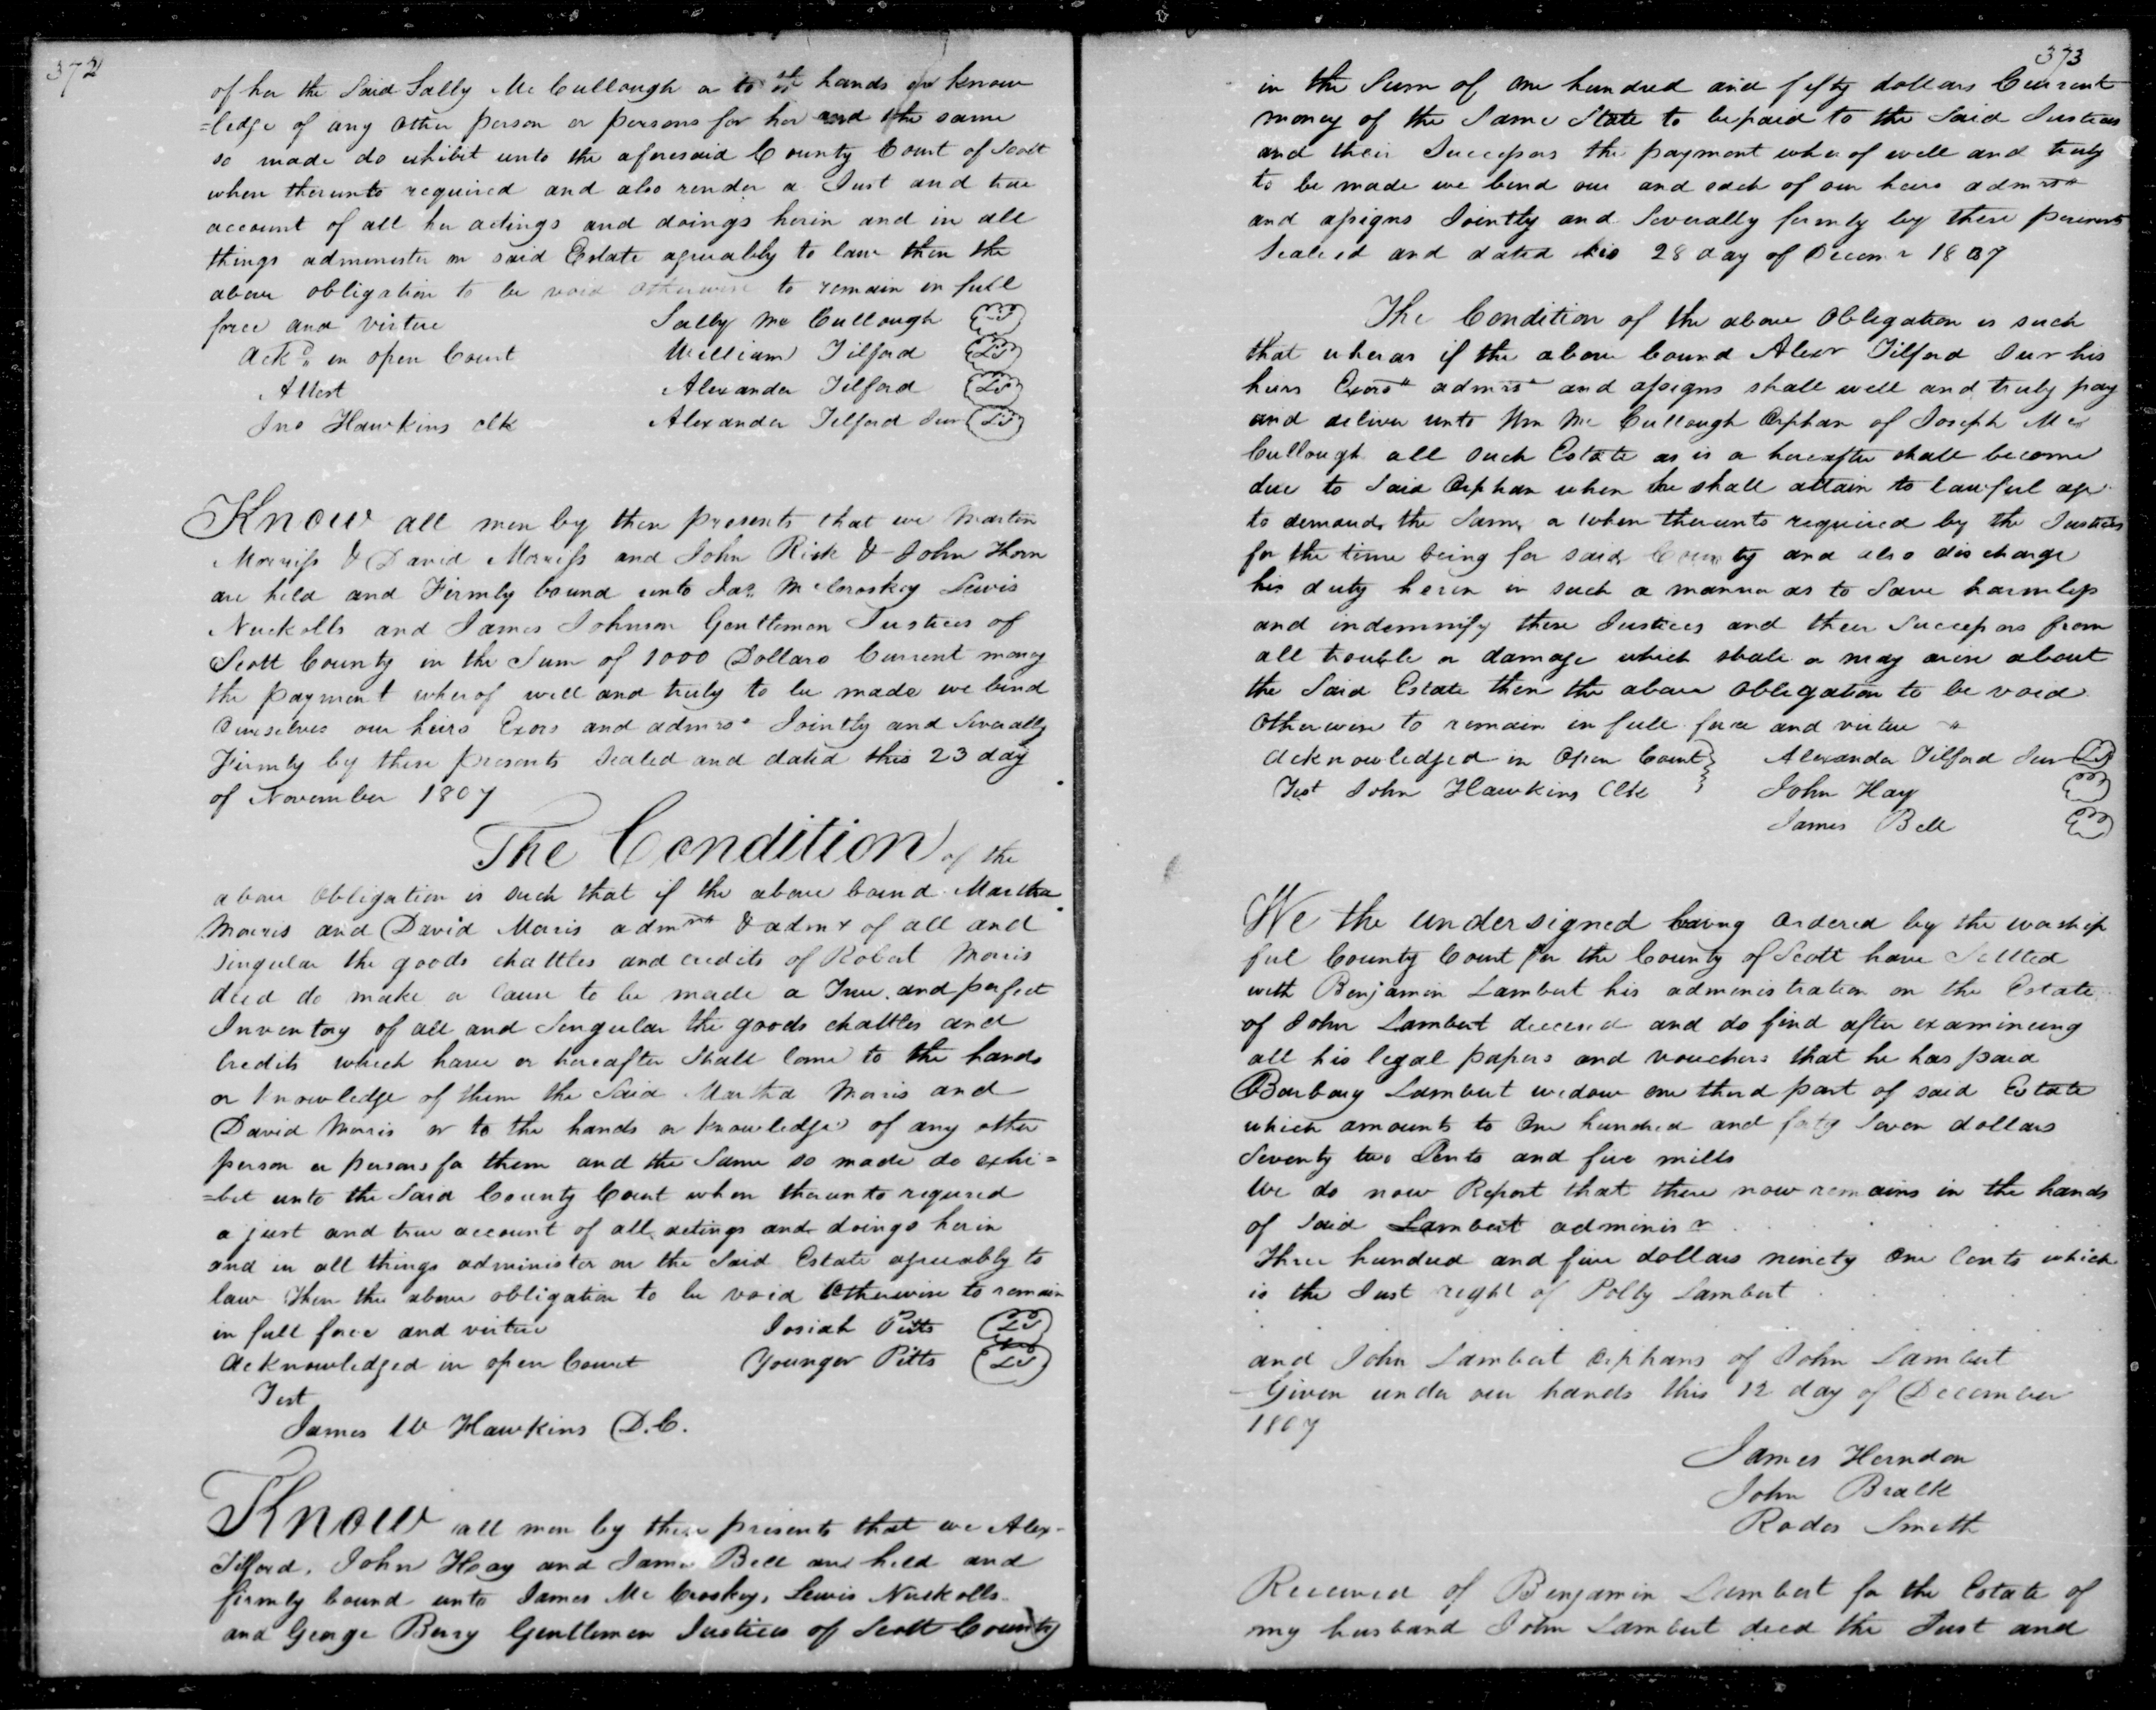 372
of her the Said Sally Mc Cullough or to the hands or know
=ledge of any other person or persons for her and the same
so made do exhibit unto the aforesaid County Court of Scott
when therunto required and also render a Just and true
account of all her actings and doings herin and in all
things administer on said Estate agreeably to law then the
above obligation to be void otherwise to remain in full
force and virtue Sally Mc Cullough
Ackd in open Court William Tilford LS
Attest Alexander Tilford LS
Jno Hawkins clk Alexander Tilford Jur LS
Know all men by these presents that we Martin
Morriss & David Morriss and John Risk & John Thorn
are held and Firmly bound unto Jas. McCroskey Lewis
Nuckolls and James Johnson Gentlemen Justices of
Scott County in the Sum of 1000 Dollars Current money
the payment wherof well and truly to be made we bind
Ourselves our heirs Exors and admrs Jointly and Severally
Firmly by these presents Sealed and dated this 23 day
of November 1807
The Condition of the
above obligation is such that if the above bound Martha
Morris and David Morris admrs & admx of all and
Singular the goods chattles and credits of Robert Morris
decd do make or cause to be made a True and perfect
Inventory of all and Singular the goods chattles and
Credits which have or hereafter Shall come to the hands
or knowledge of them the Said Martha Morris and
David Morris or to the hands or knowledge of any other
person or persons for them and the Same so made do exhi=
=bit unto the Said County Court when therunto required
a just and true account of all actings and doings herin
and in all things administer on the Said Estate agreeably to
law then the above obligation to be void Otherwise to remain
in full force and virtue Josiah Pitts LS
Acknowledged in open Court Younger Pitts LS
Test
James W Hawkins D.C.
Know all men by these presents that we Alex-
Tilford, John Hay and James Bell are held and
firmly bound unto James Mc Croskey, Lewis Nuckolls
and George Berry Gentlemen Justices of Scott County
373
in the Sum of one hundred and fifty dollars Current
money of the Same State to be paid to the Said Justices
and their Successors the payment wherof well and truly
to be made we bend our and each of our heirs admrs
and assigns Jointly and Severally firmly by these presents
Sealed and dated this 28 day of Decemr 1807
The Condition of the above Obligation is such
that wheras if the above bound Alexr Tilford Jur his
heirs Exors admrs and assigns shall well and truly pay
and deliver unto Wm Mc Cullough Orphan of Joseph Mc
Cullough all such Estate as is or hereafter shall become
due to Said Orphan when he shall attain to lawful age
to demand the Same or when therunto required by the Justices
for the time being for said County and also discharge
his duty herin in such a manner as to Save harmless
and indemnify these Justices and their Successors from
all trouble or damage which shall or may arise about
the Said Estate then the above Obligation to be void
Otherwise to remain in full force and virtue
Acknowledged in Open Court Alexander Tilford Jur LS
Test John Hawkins Clk John Hay
James Bell
We the undersigned being ordered by the worship
ful County Court for the County of Scott have Settled
with Benjamin Lambert his administration on the Estate
of John Lambert deceased and do find after examining
all his legal papers and vouchers that he has paid
Barbary Lambert widow one third part of said Estate
which amounts to One hundred and forty Seven dollars
Seventy two Cents and five mills
We do now Report that there now remains in the hands
of Said Lambert administr
Three hundred and five dollars ninety One Cents which
is the Just right of Polly Lambert
and John Lambert Orphans of John Lambert
Given under our hands this 12 day of December
1807
James Herndon
John Bralle
Rodes Smith
Received of Benjamin Lambert for the Estate of
my husband John Lambert decd the Just and